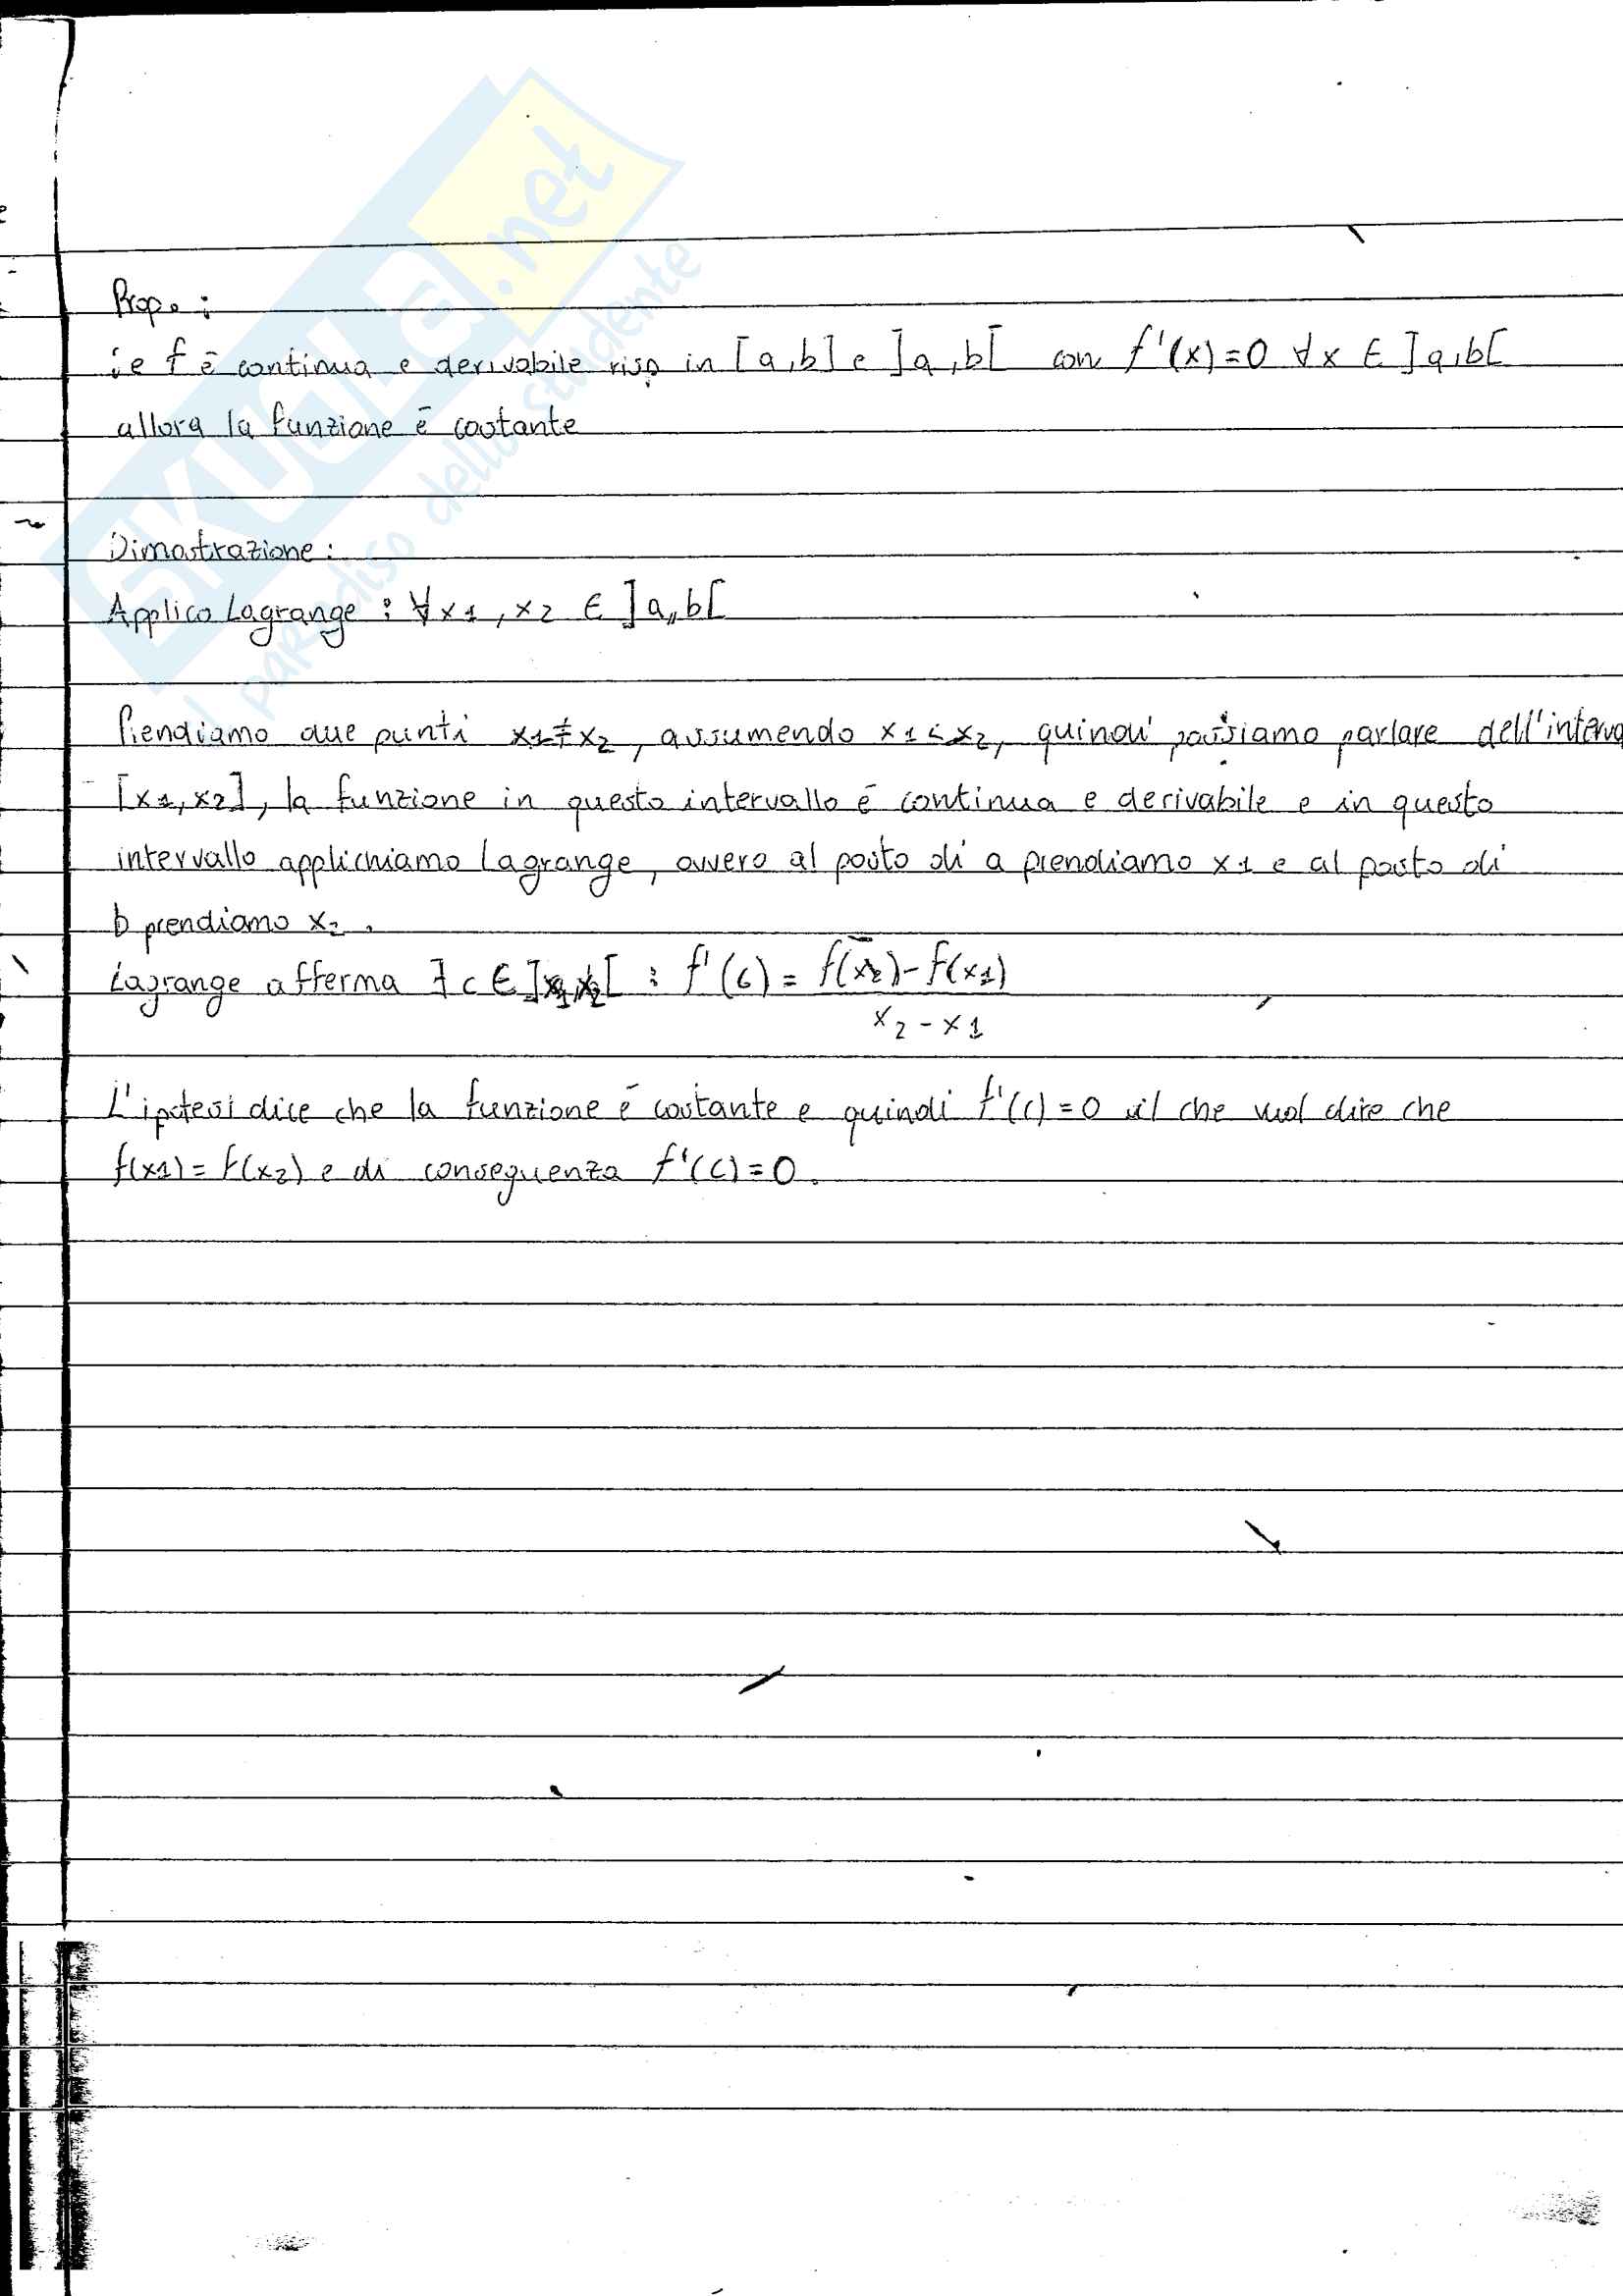 SKUOLA.net
il paradiso dello studente
Prop.:
se f è continua e derivabile risp in [a,b] e ]a,b[ con f'(x)=0 ∀x ∈ ]a,b[
allora la funzione è costante
Dimostrazione:
Applico Lagrange: ∀x1, x2 ∈ ]a,b[
Prendiamo due punti x1≠x2, assumendo x1<x2, quindi possiamo parlare dell'interva
[x1,x2], la funzione in questo intervallo è continua e derivabile e in questo
intervallo applichiamo Lagrange, ovvero al posto di a prendiamo x1 e al posto di
b prendiamo x2.
Lagrange afferma ∃c∈]x1,x2[ : f'(c) = f(x2)-f(x1)
x2-x1
L'ipotesi dice che la funzione è costante e quindi f'(c)=0 il che vuol dire che
f(x1)=f(x2) e di conseguenza f'(c)=0.